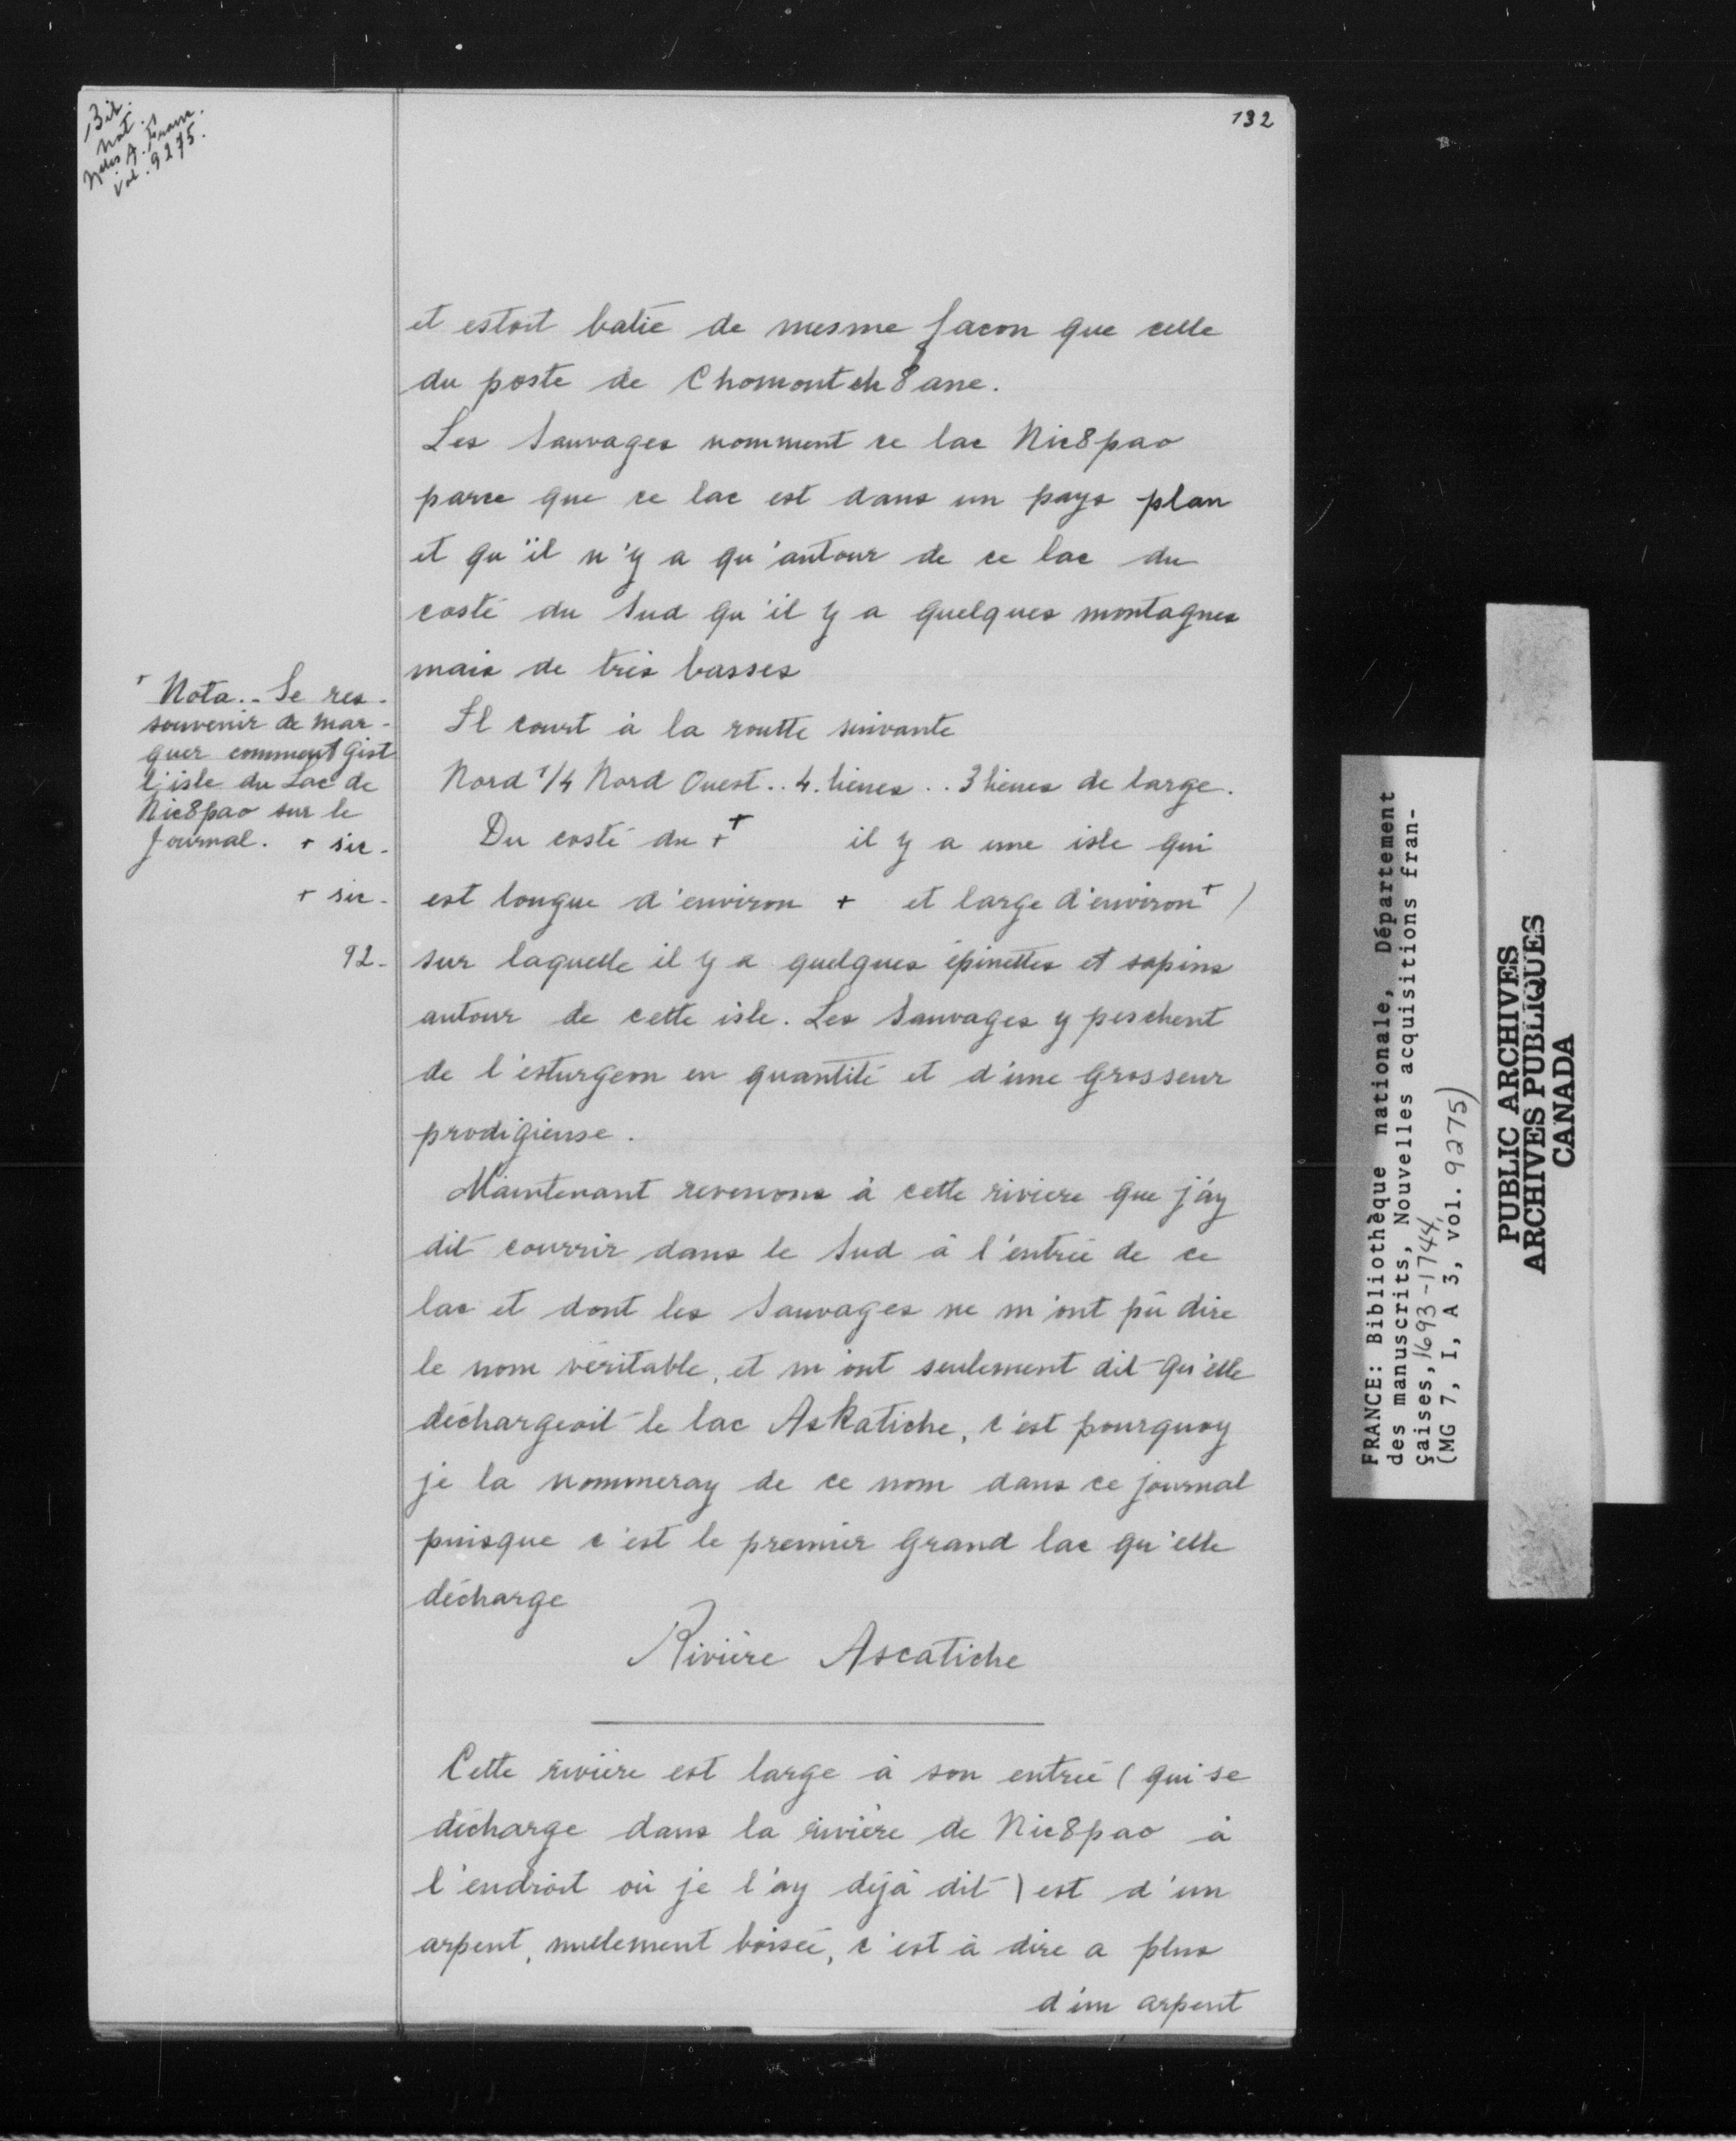 Bib.
Nat.
Nelles A. franc.
Vol. 9275.
132
et estoit batie de mesme facon que celle
du poste de Chomontch8ane.
Les Sauvages nomment ce lac Nic8pao
parce que ce lac est dans un pays plan
et qu'il n'y a qu'autour de ce lac du
costé du Sud qu'il y a quelques montagnes
mais de très basses
Il court à la routte suivante
Nord 1/4 Nord Ouest.. 4. lieues .. 3 lieues de large.
Du costé du ++ il y a une isle qui
est longue d'environ + et large d'environ + )
sur laquelle il y a quelques épinettes et sapins
autour de cette isle. Les Sauvages y peschent
de l'esturgeon en quantité et d'une grosseur
prodigieuse.
Maintenant revenons à cette riviere que j'ay
dit courrir dans le Sud à l'entrée de ce
lac et dont les Sauvages ne m'ont pû dire
le nom véritable, et m'ont seulement dit qu'elle
déchargeoit le lac Askatiche, c'est pourquoy
je la nommeray de ce nom dans ce journal
puisque c'est le premier grand lac qu'elle
décharge
Rivière Ascatiche
Cette rivière est large à son entrée (qui se
décharge dans la rivière de Nic8pao à
l'endroit où je l'ay déjà dit) est d'un
arpent, nullement boisée, c'est à dire a plus
d'un arpent
+ Nota.- Se res-
souvenir de mar-
quer comment gist
l'isle du Lac de
Nic8pao sur le
Journal. + sic-
+ sic-
92-
FRANCE: Bibliothèque nationale, Département
des manuscrits, Nouvelles acquisitions fran-
çaises, 1693-1744
(MG 7, I, A 3, vol. 9275)
PUBLIC ARCHIVES
ARCHIVES PUBLIQUES
CANADA